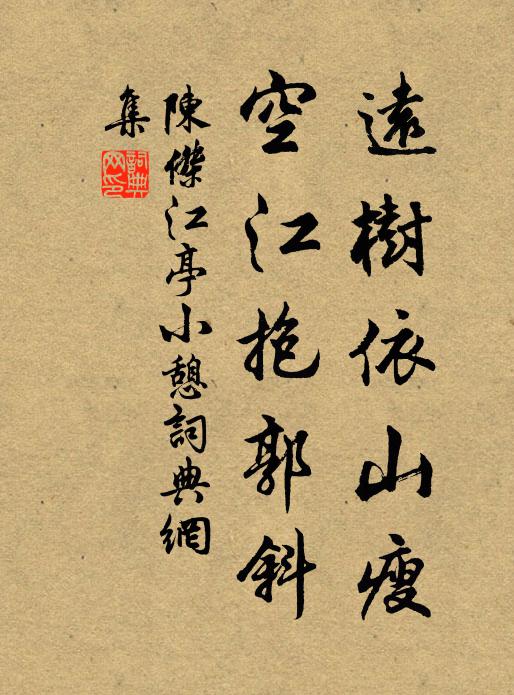 遠樹依山瘦
空江抱郭斜
陳傑江亭小憩詞典網
集
詞典
网印